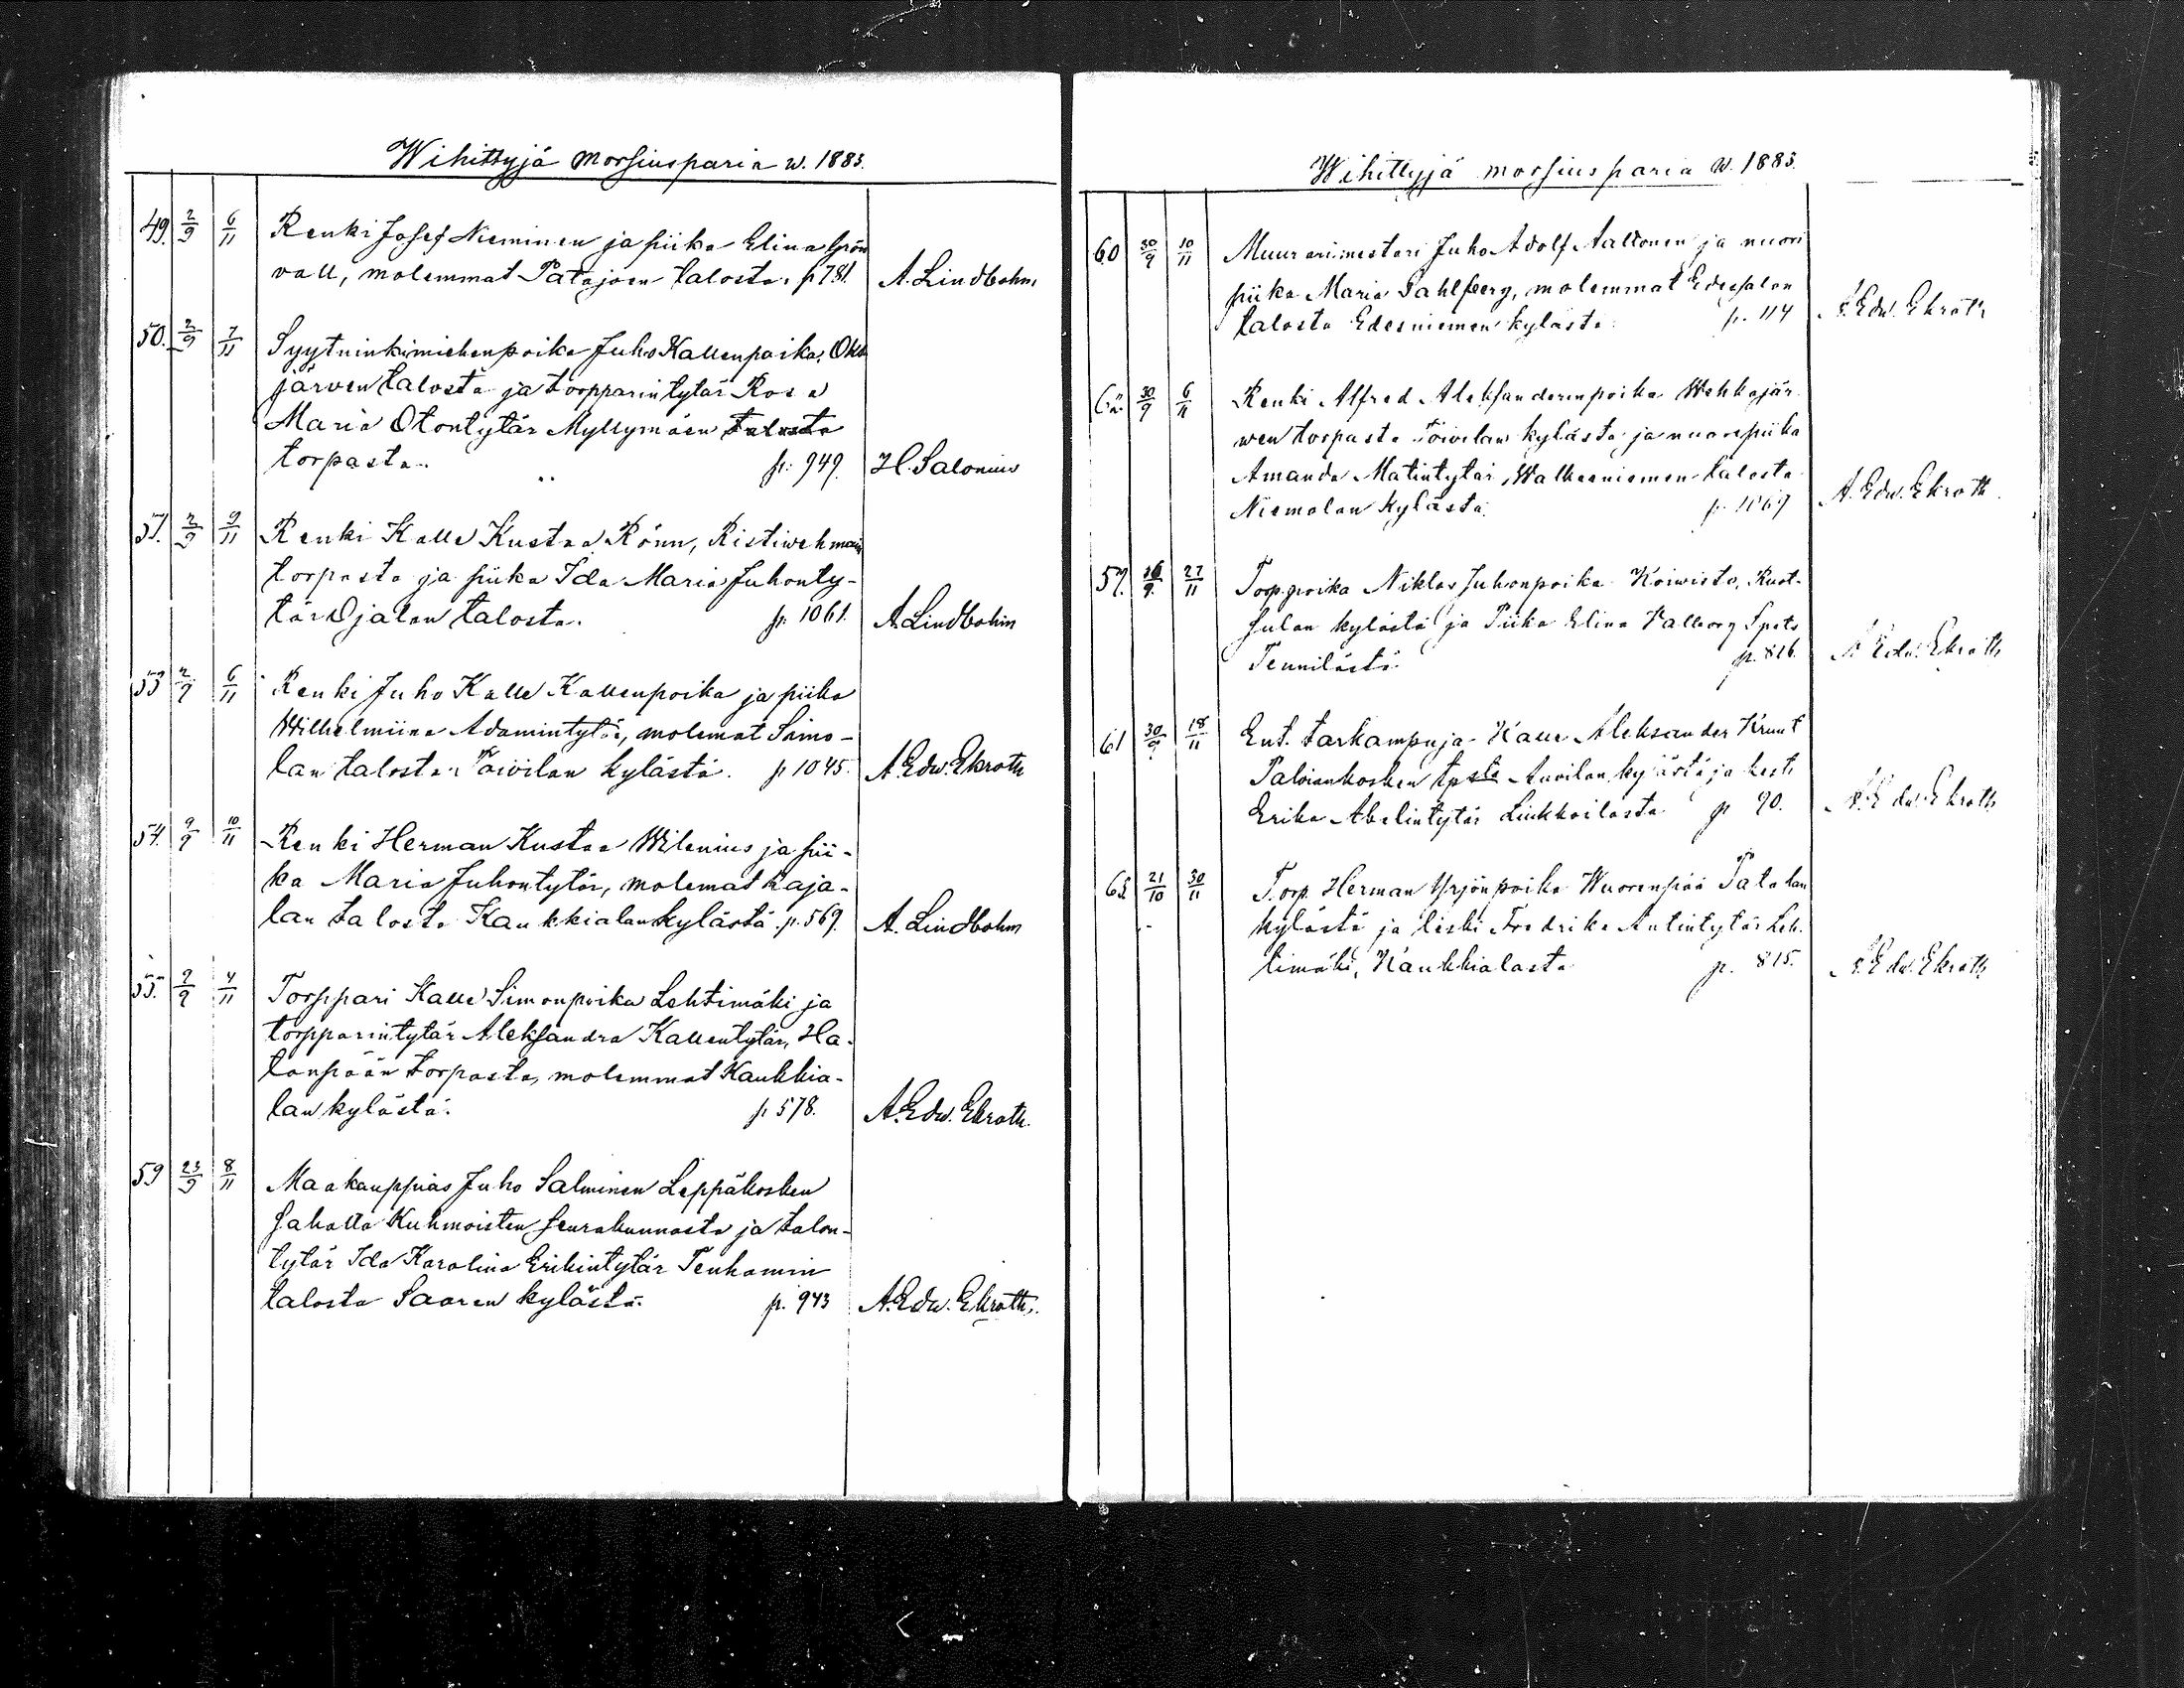 Wihittyjä morsiusparia w. 1883.
49. 2/9 6/11 Renki Josef Nieminen ja piika Elina Grön
vall, molemmat Patajoen talosta. p 781. A. Lindbohm
50. 2/9 7/11 Syytninkimiehenpoika Juho Kallenpoika,
järven talosta ja torpparintytär Rosa
Maria Otontytär Myllymäen talosta
torpasta. p. 949. H. Salonius
51. 2/9 9/11 Renki Kalle Kustaa Rönn, Ristiwehmaan
torpasta ja piika Ida Maria Juhonty-
tär Ojalan talosta. p. 1061. A. Lindbohm
53 2/9 6/11 Renki Juho Kalle Kallenpoika ja piika
Wilhelmiina Adamintytär, molemat Simo-
lan talosta Toivilan kylästä. p 1045. A. Edw. Ekroth
54. 9/9 10/11 Renki Herman Kustaa Wilenius ja pii-
ka Maria Juhontytär, molemat Raja-
lan talosta Kaukkialan kylästä. p. 569. A. Lindbohm
55. 9/9 4/11 Torppari Kalle Simonpoika Lehtimäki ja
torpparintytär Aleksandra Kallentytär, Ha-
lanpään torpasta, molemmat Kaukkia-
lan kylästä. p 578. A. Edw. Ekroth.
59 23/9 8/11 Maakauppias Juho Salminen Leppäkosken
sahalta Kuhmoisten seurakunnasta ja talon-
tytär Ida Karolina Erikintytär Tenhamin
talosta Saaren kylästä. p. 943 A. Edw. Ekroth.
Wihittyjä morsiusparia w. 1883.
60 30/9 10/11 Muurarimestari Juho Adolf Aaltonen ja nuori
piika Maria Dahlberg, molemmat Edessalon
talosta Edesniemen kylästä. p. 114 A. Edw. Ekroth
30/9 6/11 Renki Alfred Aleksanderinpoika Wehkajär-
wen torpasta Toivilan kylästä ja nuoripiika
Amanda Matintytär, Walkeaniemen talosta
Niemolan kylästä. p. 1069 A. Edw. Ekroth.
57. 16/9. 27/11 Torp.poika Niklas Juhonpoika Koiwisto, Ruot-
sulan kylästä ja Piika Elina Valborg Spets
Tennilästä p. 826. A. Edw. Ekroth
61 30/9 18/11 Ent. tarkampuja Kalle Aleksander Krunt
tpsta Auvilan kylästä ja leski
Erika Abelintytär Linkkoilasta p 90. A. Edw. Ekroth
65 21/10 30/11 Torp. Herman Yrjönpoika Wuorenpää Patalan
kylästä ja leski Fredrika Antintytär Leh-
timäki, Kaukkialasta p. 815. A. Edw. Ekroth